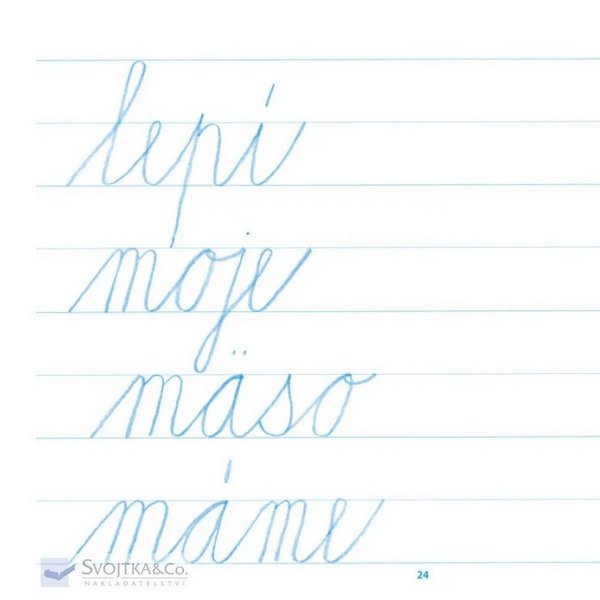 lepí
moje
mäso
máme
SVOJTKA&CO.
NAKLADATELSTVÍ
24